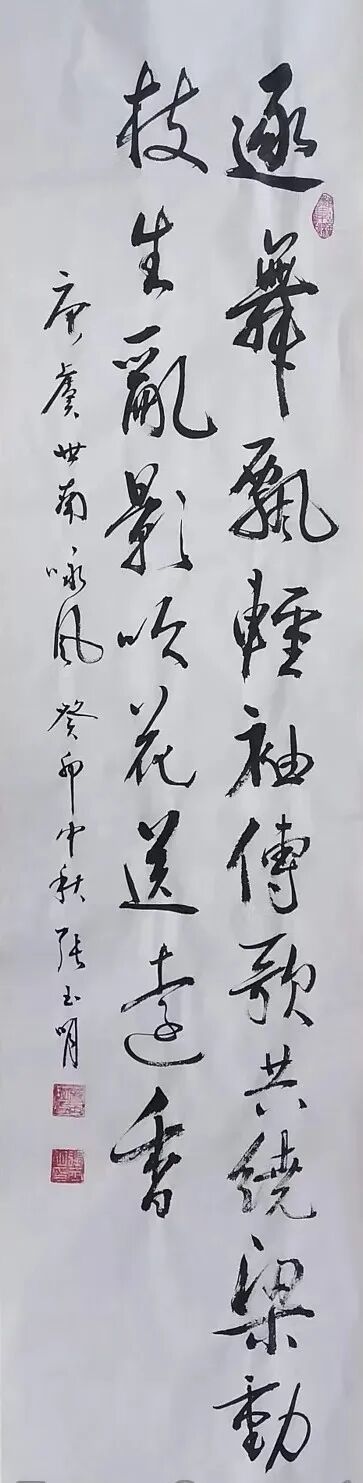 逐舞飄輕袖傳歌共繞梁動
枝生亂影吹花送遠香
唐虞世南咏风癸卯中秋张玉明